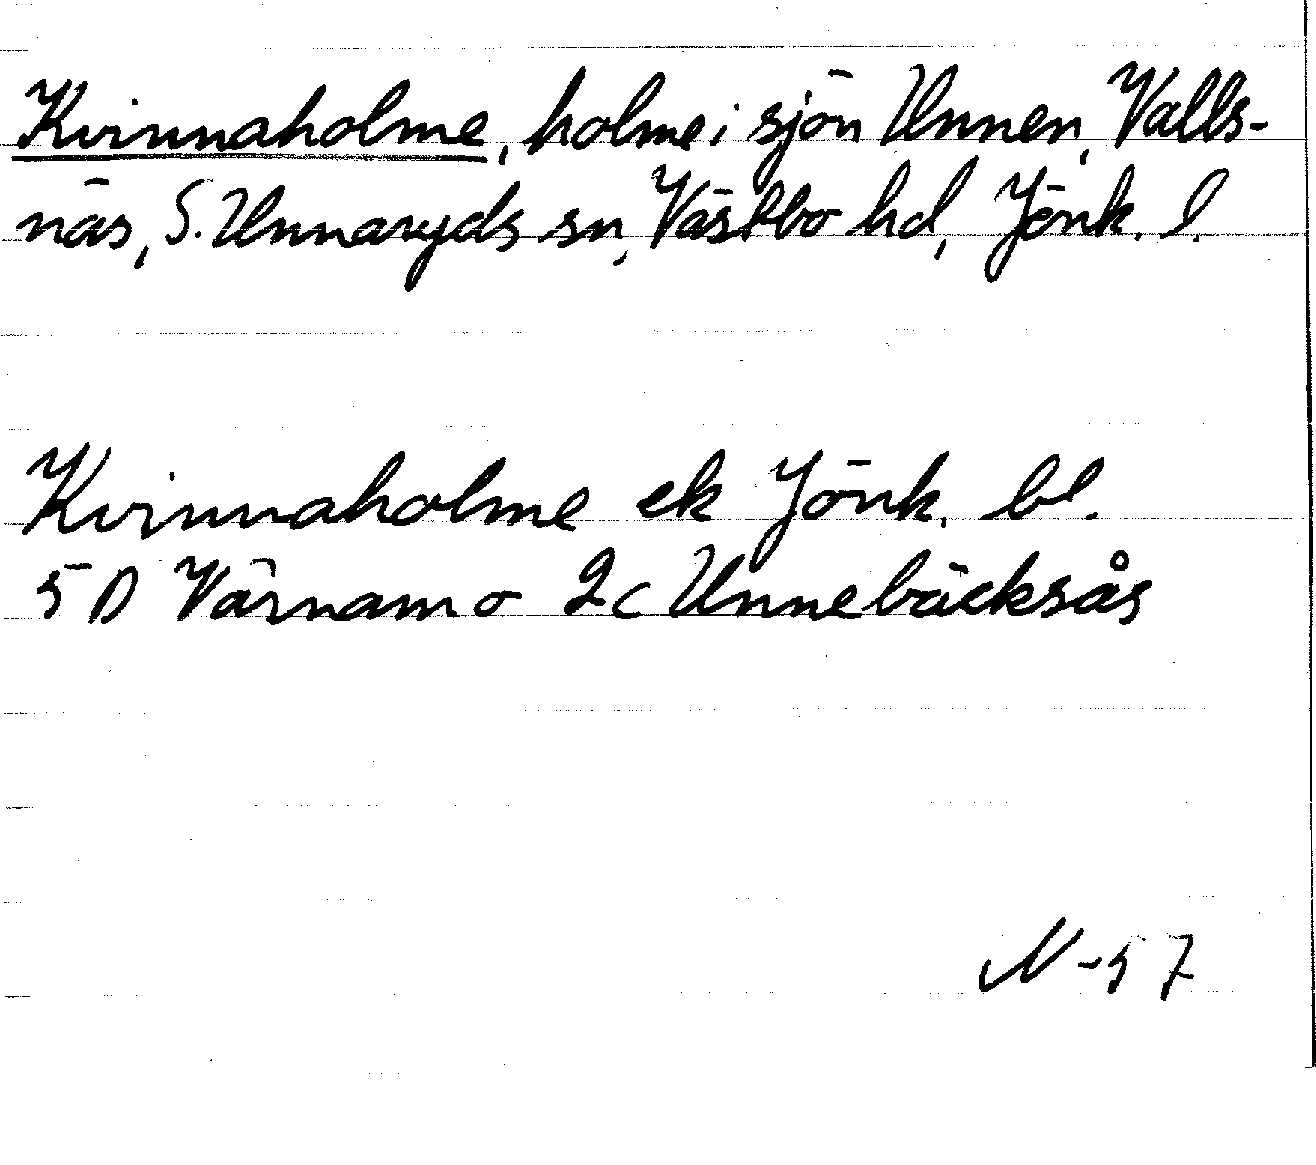 Kvinnaholme, holme i sjön Unnen, Valls-
näs, S. Unnaryds sn, Västbo hd, Jönk. l.
Kvinnaholme ek Jönk. bl.
5 D Värnamo 2c Unnebäcksås
N-57